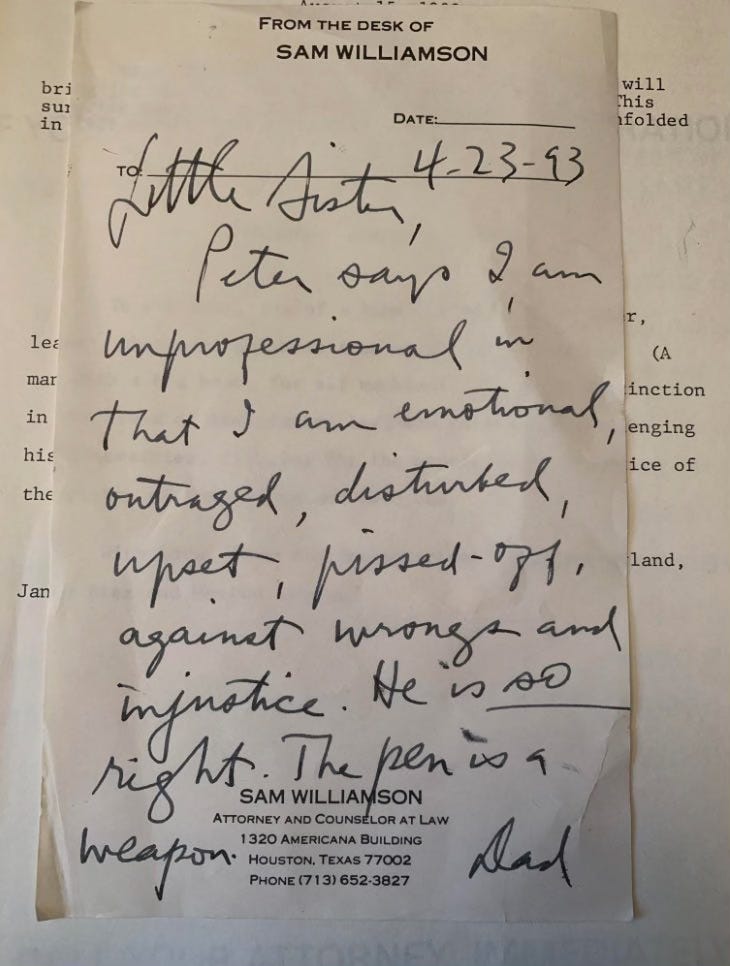 FROM THE DESK OF
SAM WILLIAMSON
bri will
This
in nfolded
DATE:
TO: 4-23-93
Little Sister,
Peter says I am
r,
unprofessional in
lea (A
mar inction
that I am emotional,
in enging
his ice of
the
outraged, disturbed,
upset, pissed-off,
land,
Jan
against wrongs and
injustice. He is so
right. The pen is a
SAM WILLIAMSON
ATTORNEY AND COUNSELOR AT LAW
1320 AMERICANA BUILDING
weapon. HOUSTON, TEXAS 77002 Dad
PHONE (713) 652-3827
YOUR ATTORNEY IMMEDIATELY